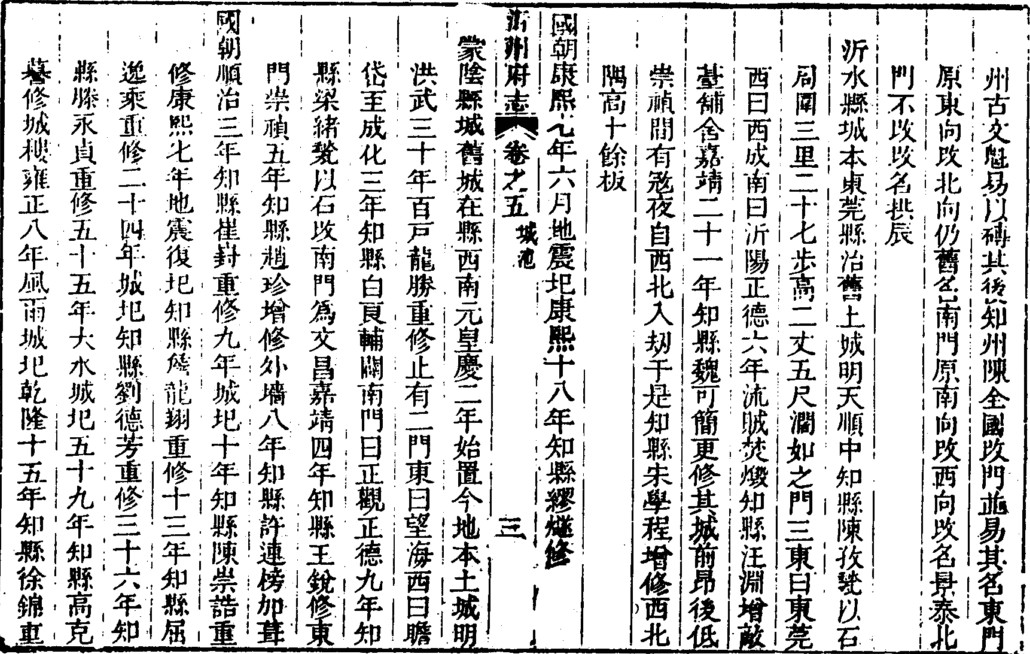 州古文魁易以磚其後知州陳全國改門並易其名東門
原東向改北向仍舊名南門原南向改西向改名景泰北
門不改改名拱辰
沂水縣城本東莞縣治舊土城明天順中知縣陳孜甃以石
周圍三里二十七步高二丈五尺濶如之門三東曰東莞
西曰西成南曰沂陽正德六年流賊焚燬知縣汪淵增敵
臺舖舍嘉靖二十一年知縣魏可簡更修其城前昂後低
崇禎間有寇夜自西北入刼于是知縣朱學程增修西北
隅高十餘板
國朝康熙七年六月地震圮康熙十八年知縣繆燧修
沂州府志 卷之五 城池 三
蒙陰縣城舊城在縣西南元皇慶二年始置今地本土城明
洪武三十年百戸龍勝重修止有二門東曰望海西曰瞻
岱至成化三年知縣白良輔闢南門曰正觀正德九年知
縣梁緒甃以石改南門爲文昌嘉靖四年知縣王銳修東
門崇禎五年知縣趙珍增修外墻八年知縣許連榜加葺
國朝順治三年知縣崔葑重修九年城圮十年知縣陳崇誥重
修康熙七年地震復圮知縣詹龍翊重修十三年知縣屈
逸乘重修二十四年城圮知縣劉德芳重修三十六年知
縣滕永貞重修五十五年大水城圮五十九年知縣高克
謩修城樓雍正八年風雨城圮乾隆十五年知縣徐錦重